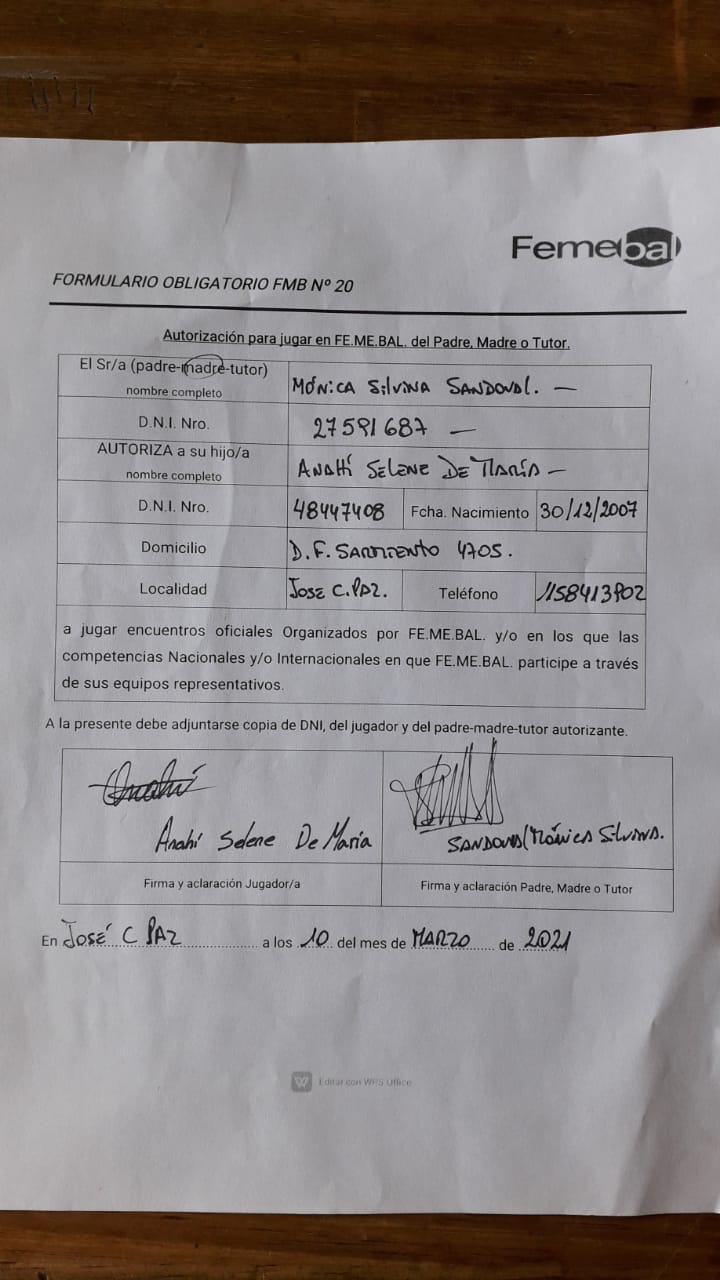 Femebal
FORMULARIO OBLIGATORIO FMB Nº 20
Autorización para jugar en FE.ME.BAL. del Padre, Madre o Tutor.
El Sr/a (padre-madre-tutor)
nombre completo
MÓNICA SILVINA SANDOVAL. —
D.N.I. Nro.
27591687 —
AUTORIZA a su hijo/a
nombre completo
ANAHÍ SELENE DE MARÍA —
D.N.I. Nro.
48447408 Fcha. Nacimiento 30/12/2007
Domicilio D.F. SARMIENTO 4705.
Localidad JOSE C. PAZ. Teléfono 1158413902
a jugar encuentros oficiales Organizados por FE.ME.BAL. y/o en los que las
competencias Nacionales y/o Internacionales en que FE.ME.BAL. participe a través
de sus equipos representativos.
A la presente debe adjuntarse copia de DNI, del jugador y del padre-madre-tutor autorizante.
Anahí
Anahí Selene De María
SANDOVAL Mónica Silvina.
Firma y aclaración Jugador/a
Firma y aclaración Padre, Madre o Tutor
En JOSÉ C PAZ a los 10 del mes de MARZO de 2021
Editar con WPS Office